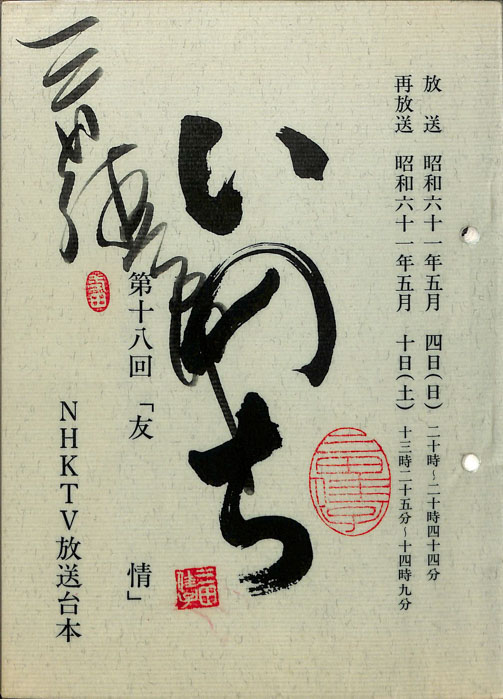 放　送　昭和六十一年五月　四日(日)　二十時~二十時四十四分
再放送　昭和六十一年五月　十日(土)　十三時二十五分~十四時九分
いのち
第十八回「友　情」
NHKTV放送台本